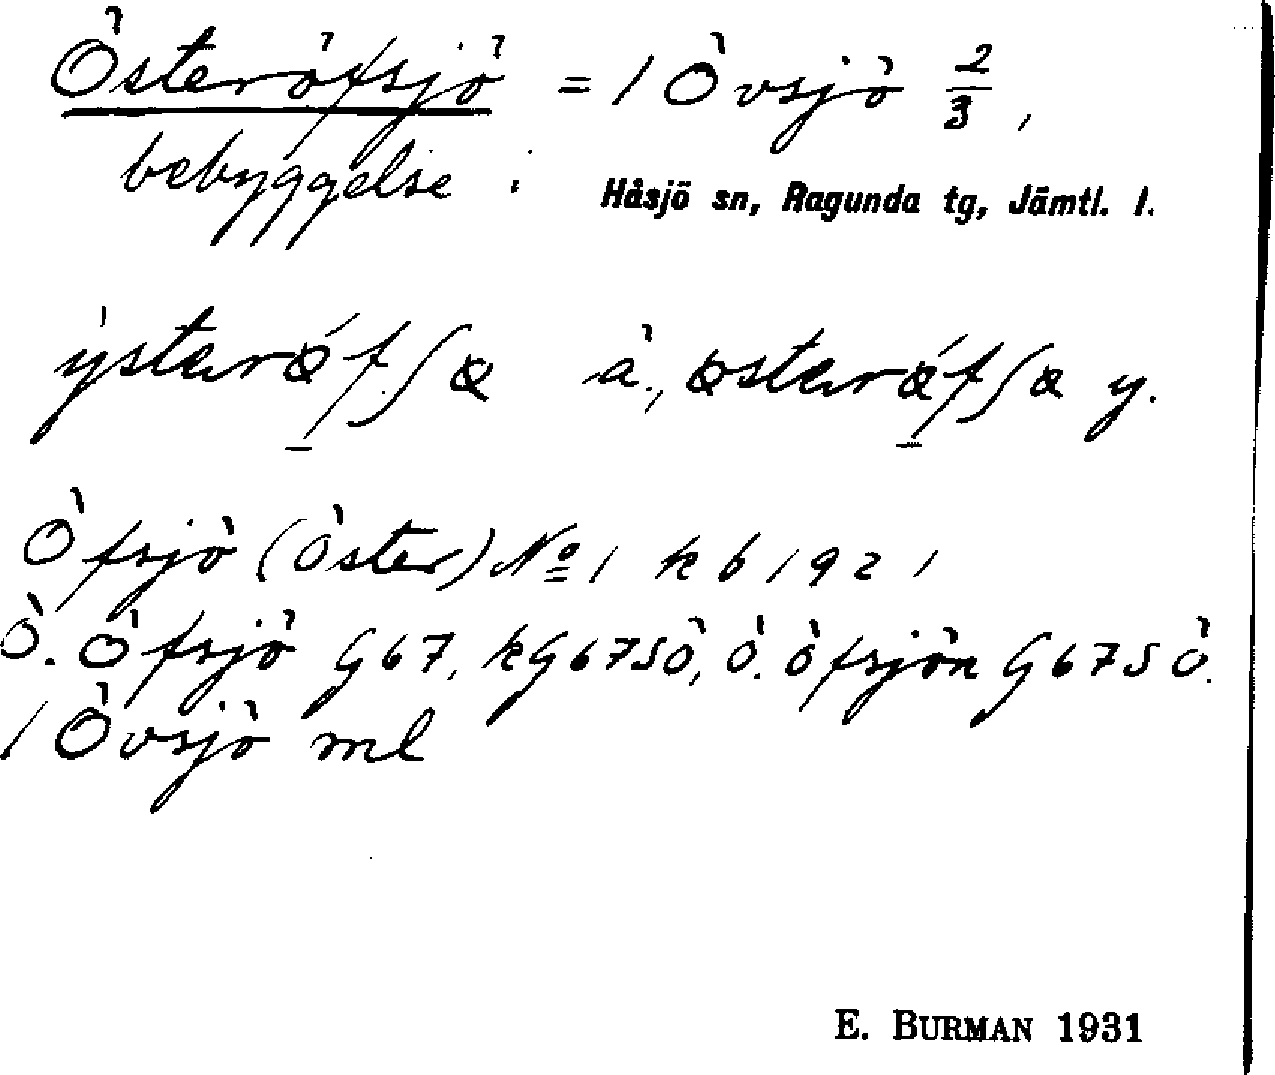 Österöfsjö = 1 Övsjö 2/3,
bebyggelse i Håsjö sn, Ragunda tg, Jämtl. l.
ystarøfʃø å., østarøfʃø y.
Öfsjö (Öster) Nº 1 kb 1921
Ö. Öfsjö G67, kG67SÖ, Ö. Öfsjön G67SÖ.
1 Övsjö ml
E. BURMAN 1931